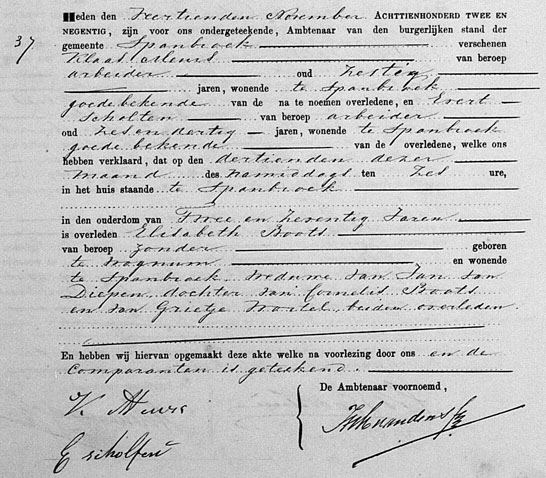 Heden den Veertienden November ACHTTIENHONDERD TWEE EN
37
NEGENTIG, zijn voor ons ondergeteekende, Ambtenaar van den burgerlijken stand der
gemeente Spanbroek verschenen
Klaas Meurs van beroep
arbeider oud zestig
jaren, wonende te Spanbroek
goede bekende van de na te noemen overledene, en Evert
Scholten van beroep arbeider
oud zes en dertig jaren, wonende te Spanbroek
goede bekende van de overledene, welke ons
hebben verklaard, dat op den dertienden dezer
maand des namiddags ten zes ure,
in het huis staande te Spanbroek
in den ouderdom van Twee en zeventig Jaren
is overleden Elisabeth Boots
van beroep zonder geboren
te Wognum en wonende
te Spanbroek, Weduwe van Jan van
Diepen, dochter van Cornelis Boots
en van Grietje Wortel, beiden overleden
En hebben wij hiervan opgemaakt deze akte welke na voorlezing door ons en de
Comparanten is geteekend.
De Ambtenaar voornoemd,
K Meurs
E scholten